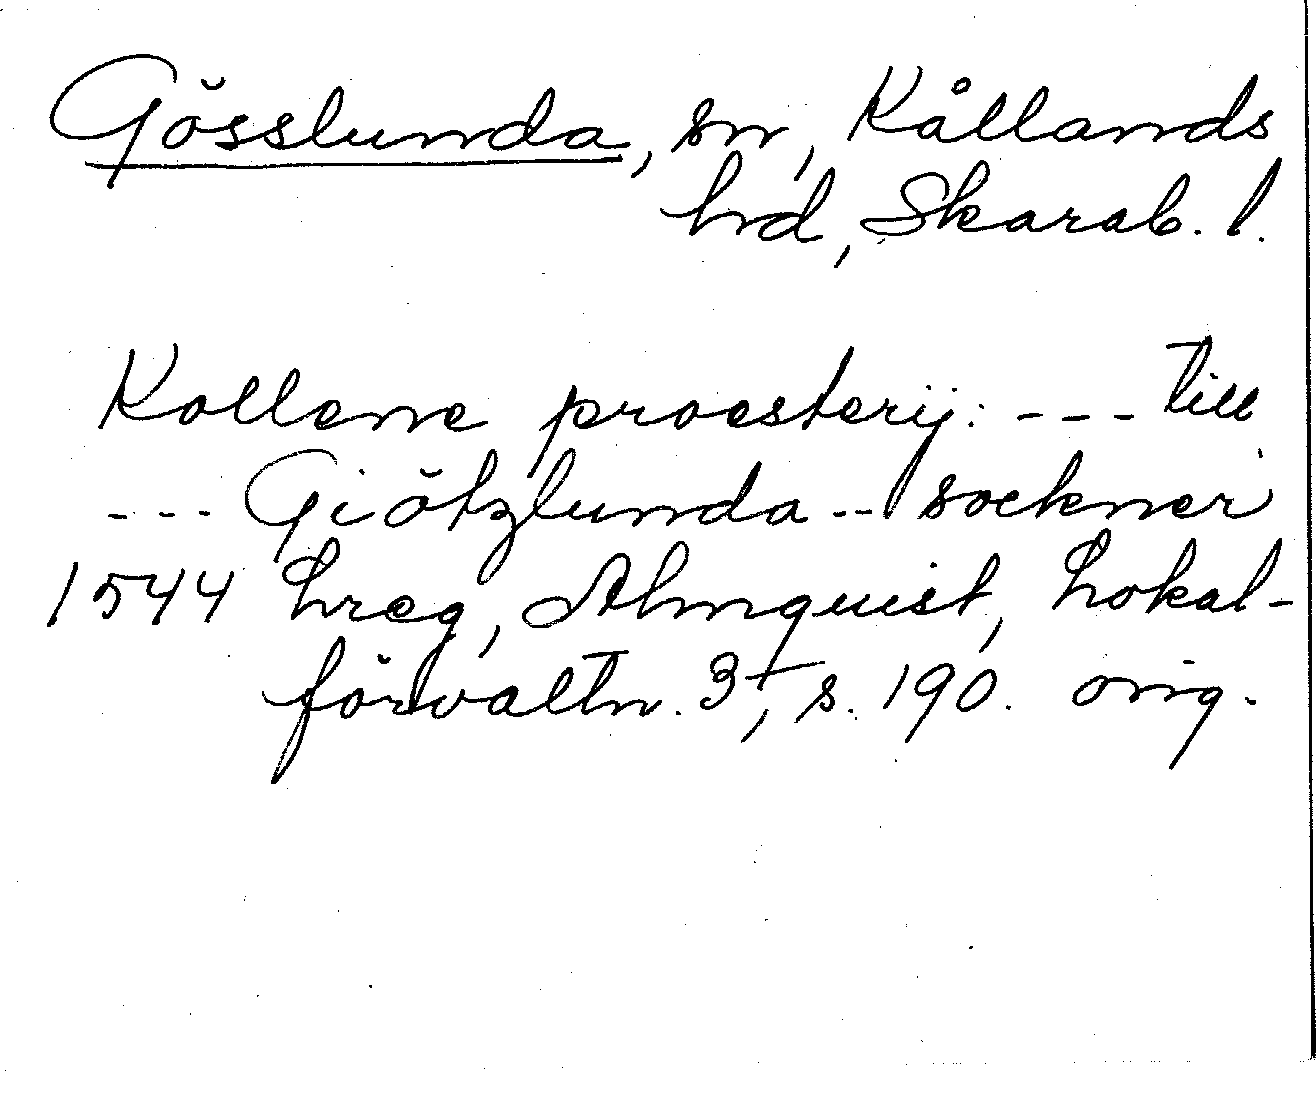 Gösslunda, sn, Kållands
hrd, Skarab. l.
Kollene proesterij: --- till
--- Giötzlunda -- sockner
1544 hreg, Almquist, Lokal-
förvaltn. 3, s. 190. orig.